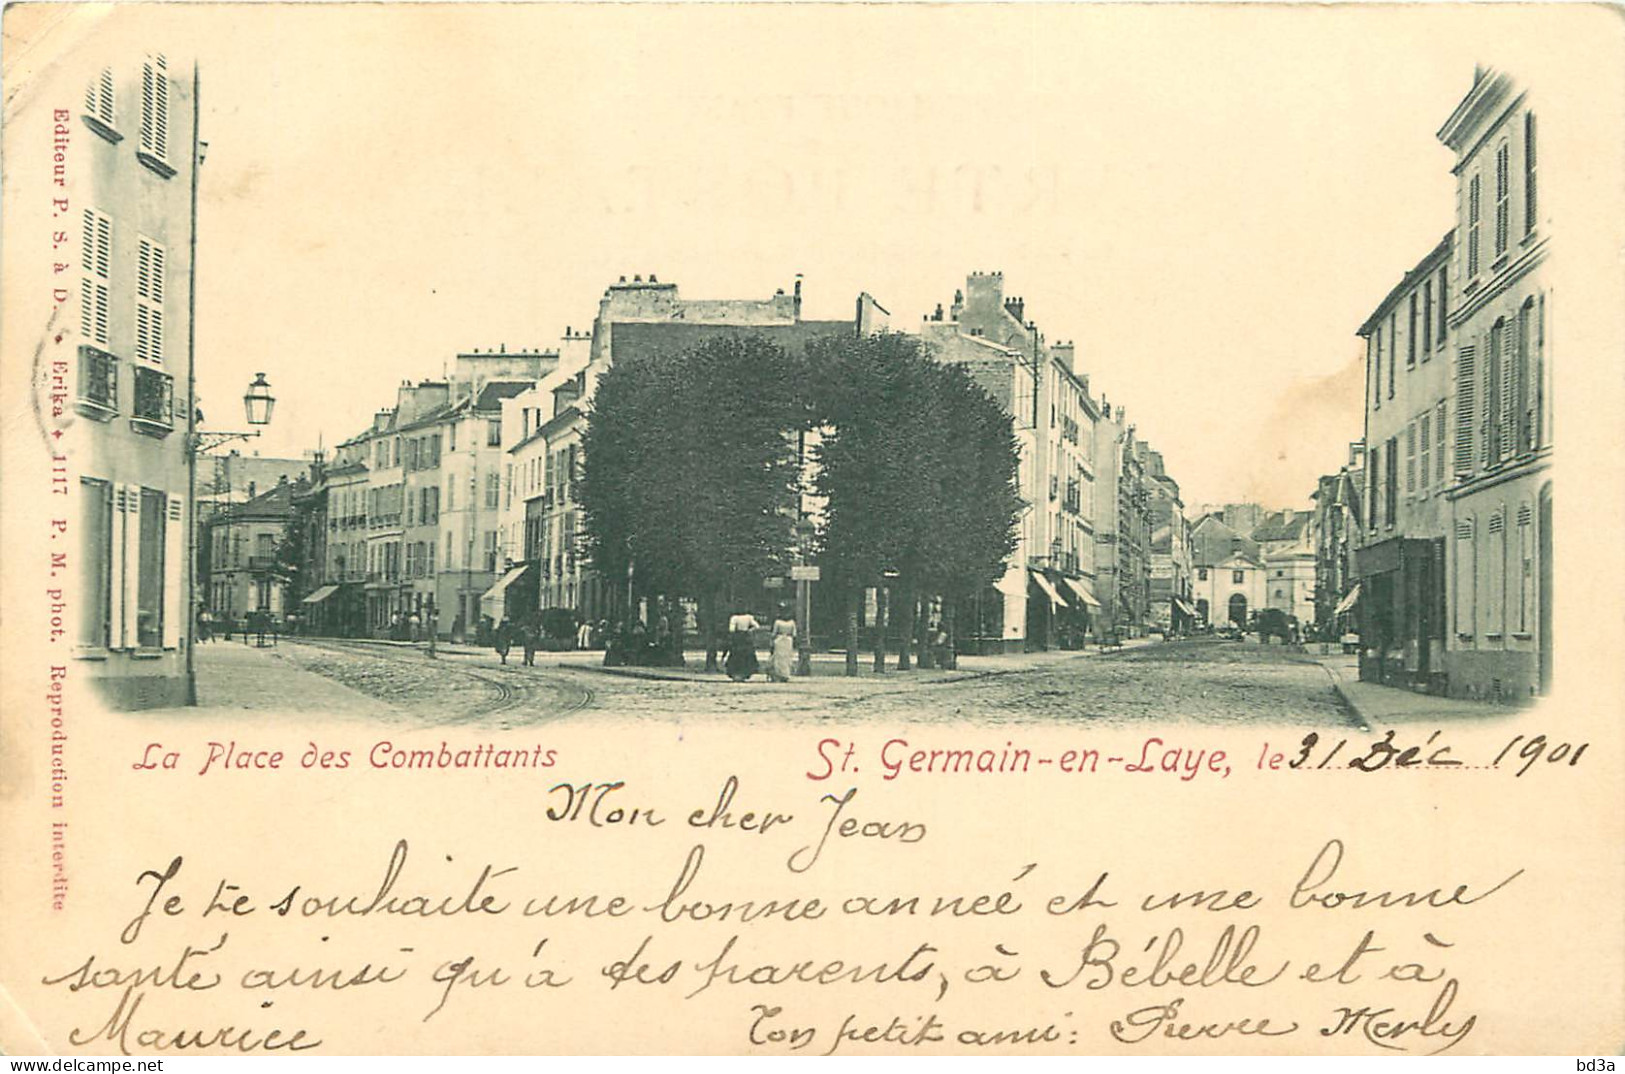 Editeur P. S. à D. ✦ Erika ✦ 1117 P. M. phot. Reproduction interdite
La Place des Combattants
St. Germain-en-Laye, le 31 Déc 1901
Mon cher Jean
Je te souhaite une bonne année et une bonne
santé ainsi qu'à tes parents, à Bébelle et à
Maurice
Ton petit ami: Pierre Merlys
delcampe.net
bd3a